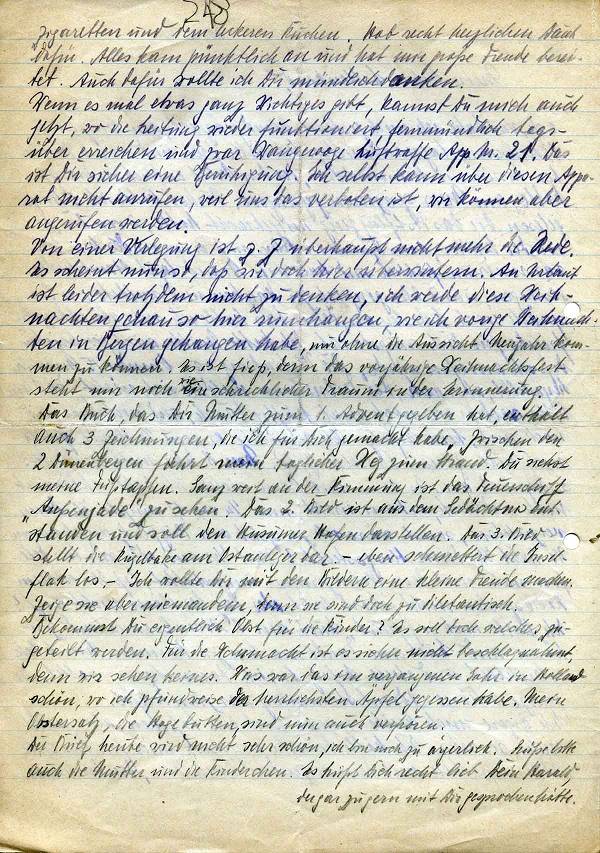 248
Zigaretten und dem leckeren Kuchen. Hab recht herzlichen Dank
dafür. Alles kam pünktlich an und hat mir große Freude berei-
tet. Auch dafür wollte ich Dir mündlich danken.
Wenn es mal etwas ganz Wichtiges gibt, kannst Du mich auch
jetzt, wo die Leitung wieder funktioniert fernmündlich tags-
über erreichen und zwar Wangerooge App. Nr. 21. Das
ist Dir sicher eine Beruhigung. Ich selbst kann über diesen Appa-
rat nicht anrufen, weil uns das verboten ist, wir können aber
angerufen werden.
Von einer Verlegung ist z. Z. überhaupt nicht mehr die Rede.
Es scheint mir so, daß wir doch hier überwintern. An Urlaub
ist leider trotzdem nicht zu denken, ich werde diese Weih-
nachten genau so hier rumhängen, wie ich vorige Weihnach-
ten in Bergen gehangen habe, nur ohne die Aussicht Neujahr kom-
men zu können. Es ist fies, denn das vorjährige Weihnachtsfest
steht mir noch wie ein schrecklicher Traum in der Erinnerung.
Das Buch, das Dir Mutter zum 1. Advent gegeben hat, enthält
auch 3 Zeichnungen, die ich für Dich gemacht habe. Zwischen den
2 Dünenbergen führt mein täglicher Weg zum Strand. Du siehst
meine Fußstapfen. Ganz weit an der Kimmung ist das Feuerschiff
"Außenjade" zu sehen. Das 2. Bild ist aus dem Gedächtnis ent-
standen und soll den Husumer Hafen darstellen. Das 3. Bild
stellt die Kugelbake am Ostanleger dar. – eben schmettert die Insel-
flak los – Ich wollte Dir mit den Bildern eine kleine Freude machen.
Zeige sie aber niemandem, denn sie sind doch zu diletantisch.
Bekommst Du eigentlich Obst für die Kinder? Es soll doch welches zu-
geteilt werden. Für die Wehrmacht ist es sicher nicht beschlagnahmt
denn wir sehen keines. Was war das im vergangenen Jahr in Holland
schön, wo ich pfundweise der herrlichsten Äpfel gegessen habe. Mein
Obstersatz, die Hagebutten, sind nun auch erfroren.
Der Brief heute wird nicht sehr schön, ich bin noch zu ärgerlich. Grüße bitte
auch die Mutter und die Kinderchen. Es küßt Dich recht lieb Dein Harald
der gar zu gern mit Dir gesprochen hätte.